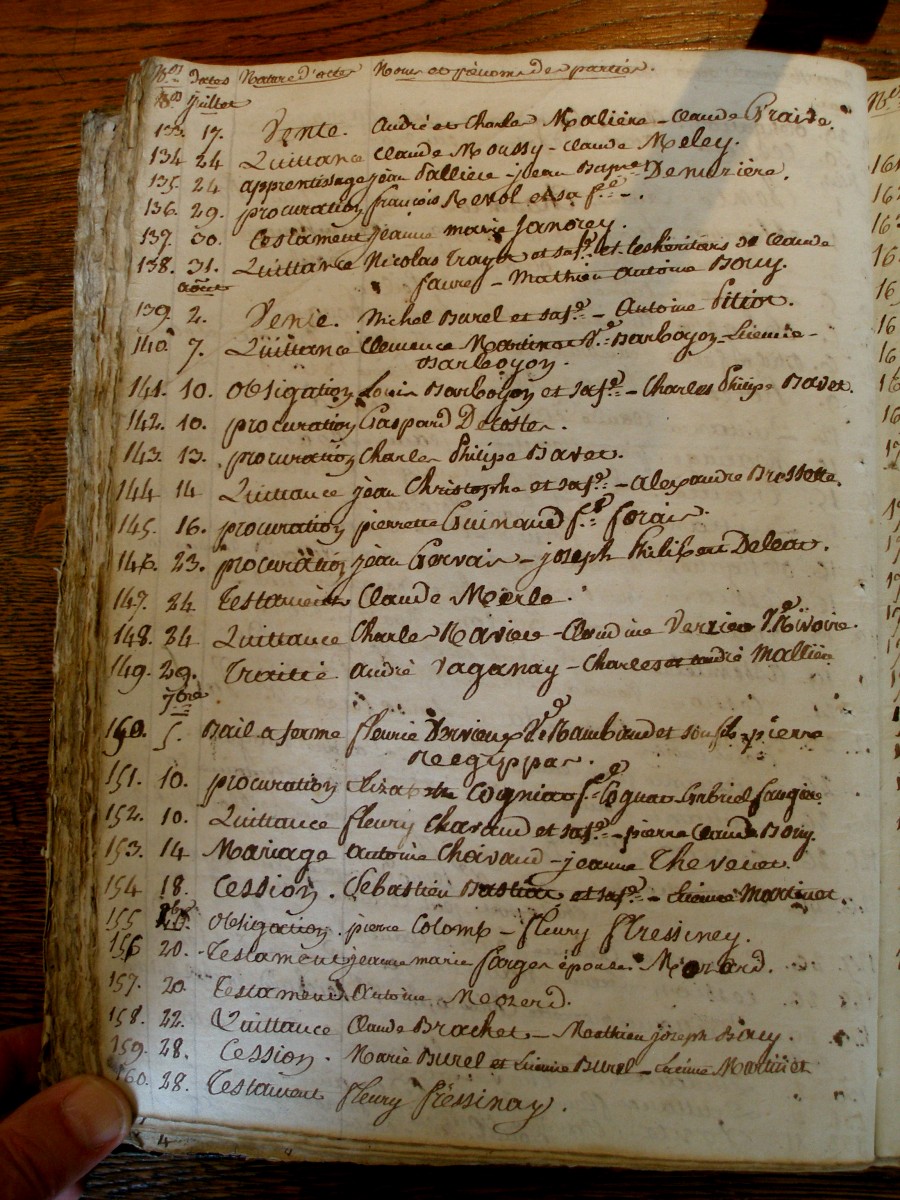 N.os Dates Nature d'actes Noms et prénoms des parties.
Juillet
133. 17. Vente. André et Charles Malière - Claude Praire.
134 24 Quittance Claude Moussy - Claude Meley.
135. 24 apprentissage jean Palliere - jean Bapte Denuzière.
136. 29. procuration françois Revol et sa fe.
137. 30. Testament jeanne marie janorey.
138. 31. Quittance Nicolas Crayer et sa fe et Les héritiers de Claude
faurey - Mathieu Antoine Bouy.
aoust
139. 2. Vente. Michel Burel et sa fe - Antoine Pitiot.
140. 7. Quittance Clemence Martinat Ve Barboyon - Etienne
Barboyon.
141. 10. obligation Louis Barboyon et sa fe - Charles Philipe Bavet.
142. 10. procuration Gaspard Detoster.
143. 13. procuration Charles Philipe Bavet.
144 14 Quittance jean Christophe et sa fe - alexandre Bressette.
145. 16. procuration pierrette Guinaud fe forais.
146. 23. procuration jean Gervais - joseph Philibert
147. 24 Testament Claude Merle.
148. 24 Quittance Charles Ravier - Claudine Verrier Ve Rivoire.
149. 29. Traitté andré Vaganay - Charles et andré Mallière
7bre
150. 5. Bail a ferme fleurie Dervieux Ve Rambaud et son fils - pierre
151. 10. procuration Elizabethe Cogniat fe Coguat Gabriel faugère
152. 10. Quittance fleury Chavaud et sa fe - pierre Claude Bouy.
153. 14 Mariage antoine Choivaud - jeanne Thevenet.
154 18. Cession. Sebastien Bastide et sa fe - Etienne Martinet.
155 obligation. pierre Colomb - fleury ffressiney.
156 20. Testament jeanne marie farges épouse Mozerd.
157. 20 Testament Antoine Mozerd.
158. 22. Quittance Claude Brachet - Matthieu joseph Bouy.
159. 28. Cession. Marie Burel et Etienne Burel - Etienne Martinet
160. 28. Testament fleury fressinay.